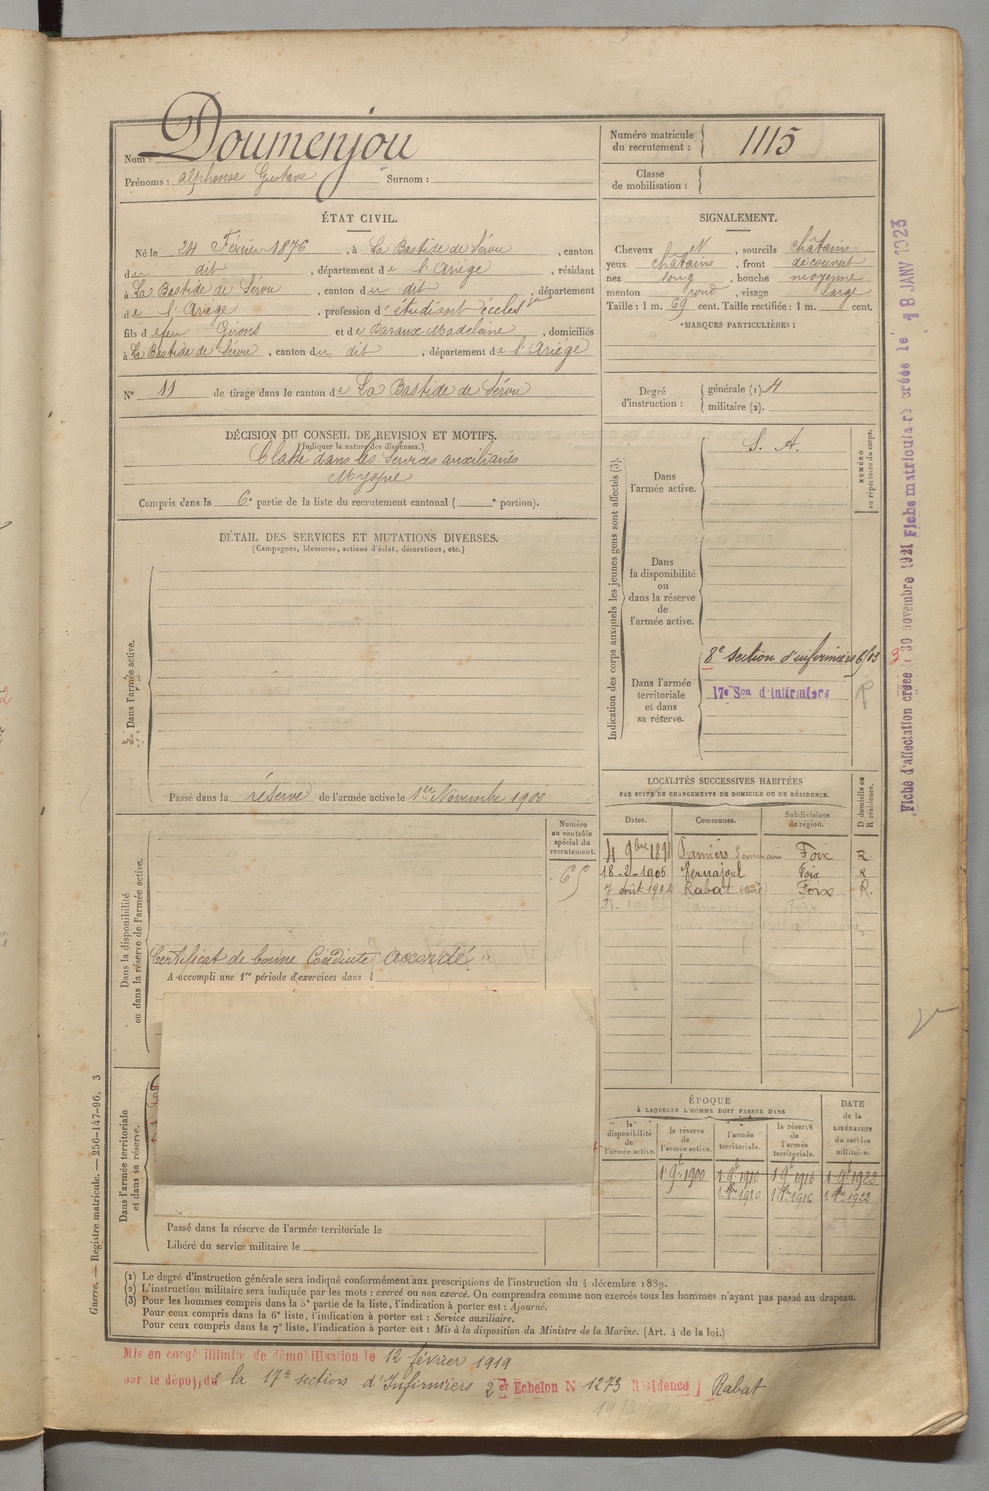 Nom : Doumenjou
Prénoms : alphonse Gustave Surnom :
Numéro matricule du recrutement : 1115
Classe de mobilisation :
ÉTAT CIVIL.
Né le 24 Février 1876, à La Bastide de Sérou, canton
du dit, département de l'Ariège, résidant
à La Bastide de Sérou, canton du dit, département
de l'Ariège, profession d'étudiant eccles
fils de feu Girons et de Daraux Madelaine, domiciliés
à La Bastide de Sérou, canton du dit, département de l'Ariège
N° 11 de tirage dans le canton de La Bastide de Sérou
SIGNALEMENT.
Cheveux N, sourcils châtains
yeux châtains, front découvert
nez long, bouche moyenne
menton rond, visage large
Taille : 1 m. 69 cent. Taille rectifiée : 1 m. cent.
MARQUES PARTICULIÈRES :
Degré d'instruction : générale (1). 4
militaire (2).
DÉCISION DU CONSEIL DE REVISION ET MOTIFS.
(Indiquer la nature des dispenses.)
Classé dans les Services auxiliaires
Myopie
Compris dans la 6e partie de la liste du recrutement cantonal ( e portion).
DÉTAIL DES SERVICES ET MUTATIONS DIVERSES.
(Campagnes, blessures, actions d'éclat, décorations, etc.)
Dans l'armée active.
Passé dans la réserve de l'armée active le 1er Novembre 1900
Indication des corps auxquels les jeunes gens sont affectés (3).
NUMÉRO au répertoire du corps.
Dans l'armée active.
S. A.
Dans la disponibilité ou dans la réserve de l'armée active.
Dans l'armée territoriale et dans sa réserve.
8e Section d'infirmiers
17e Son d'infirmiers
LOCALITÉS SUCCESSIVES HABITÉES
PAR SUITE DE CHANGEMENTS DE DOMICILE OU DE RÉSIDENCE.
D domicile ou R résidence.
Dates. Communes. Subdivisions de région.
Pamiers Foix R
18-2-1905 Vernajoul Foix R
7 août 1914 Rabat Foix R.
Numéro au contrôle spécial du recrutement.
65
Dans la disponibilité ou dans la réserve de l'armée active.
Certificat de bonne Conduite accordé
A accompli une 1re période d'exercices dans l
Dans l'armée territoriale et dans sa réserve.
Passé dans la réserve de l'armée territoriale le
Libéré du service militaire le
ÉPOQUE
À LAQUELLE L'HOMME DOIT PASSER DANS
DATE de la LIBÉRATION du service militaire.
la disponibilité de l'armée active.
la réserve de l'armée active.
l'armée territoriale.
la réserve de l'armée territoriale.
1 9e 1900 1 9e 1910 1 9e 1916 1 9e 1922
1 Nre 1910 1 Nre 1916 1 Nre 1922
(1) Le degré d'instruction générale sera indiqué conformément aux prescriptions de l'instruction du 4 décembre 1889.
(2) L'instruction militaire sera indiquée par les mots : exercé ou non exercé. On comprendra comme non exercés tous les hommes n'ayant pas passé au drapeau.
(3) Pour les hommes compris dans la 5e partie de la liste, l'indication à porter est : Ajourné.
Pour ceux compris dans la 6e liste, l'indication à porter est : Service auxiliaire.
Pour ceux compris dans la 7e liste, l'indication à porter est : Mis à la disposition du Ministre de la Marine. (Art. 4 de la loi.)
Mis en congé illimité de démobilisation le 12 février 1919
par le dépôt du la 17e section d'Infirmiers 2e Echelon N° 1273 Résidence Rabat
Guerre. — Registre matricule. — 256-147-96. 3
Fiche d'affectation créée le 30 novembre 1921 Fiche matriculaire créée le 18 JANV 1923